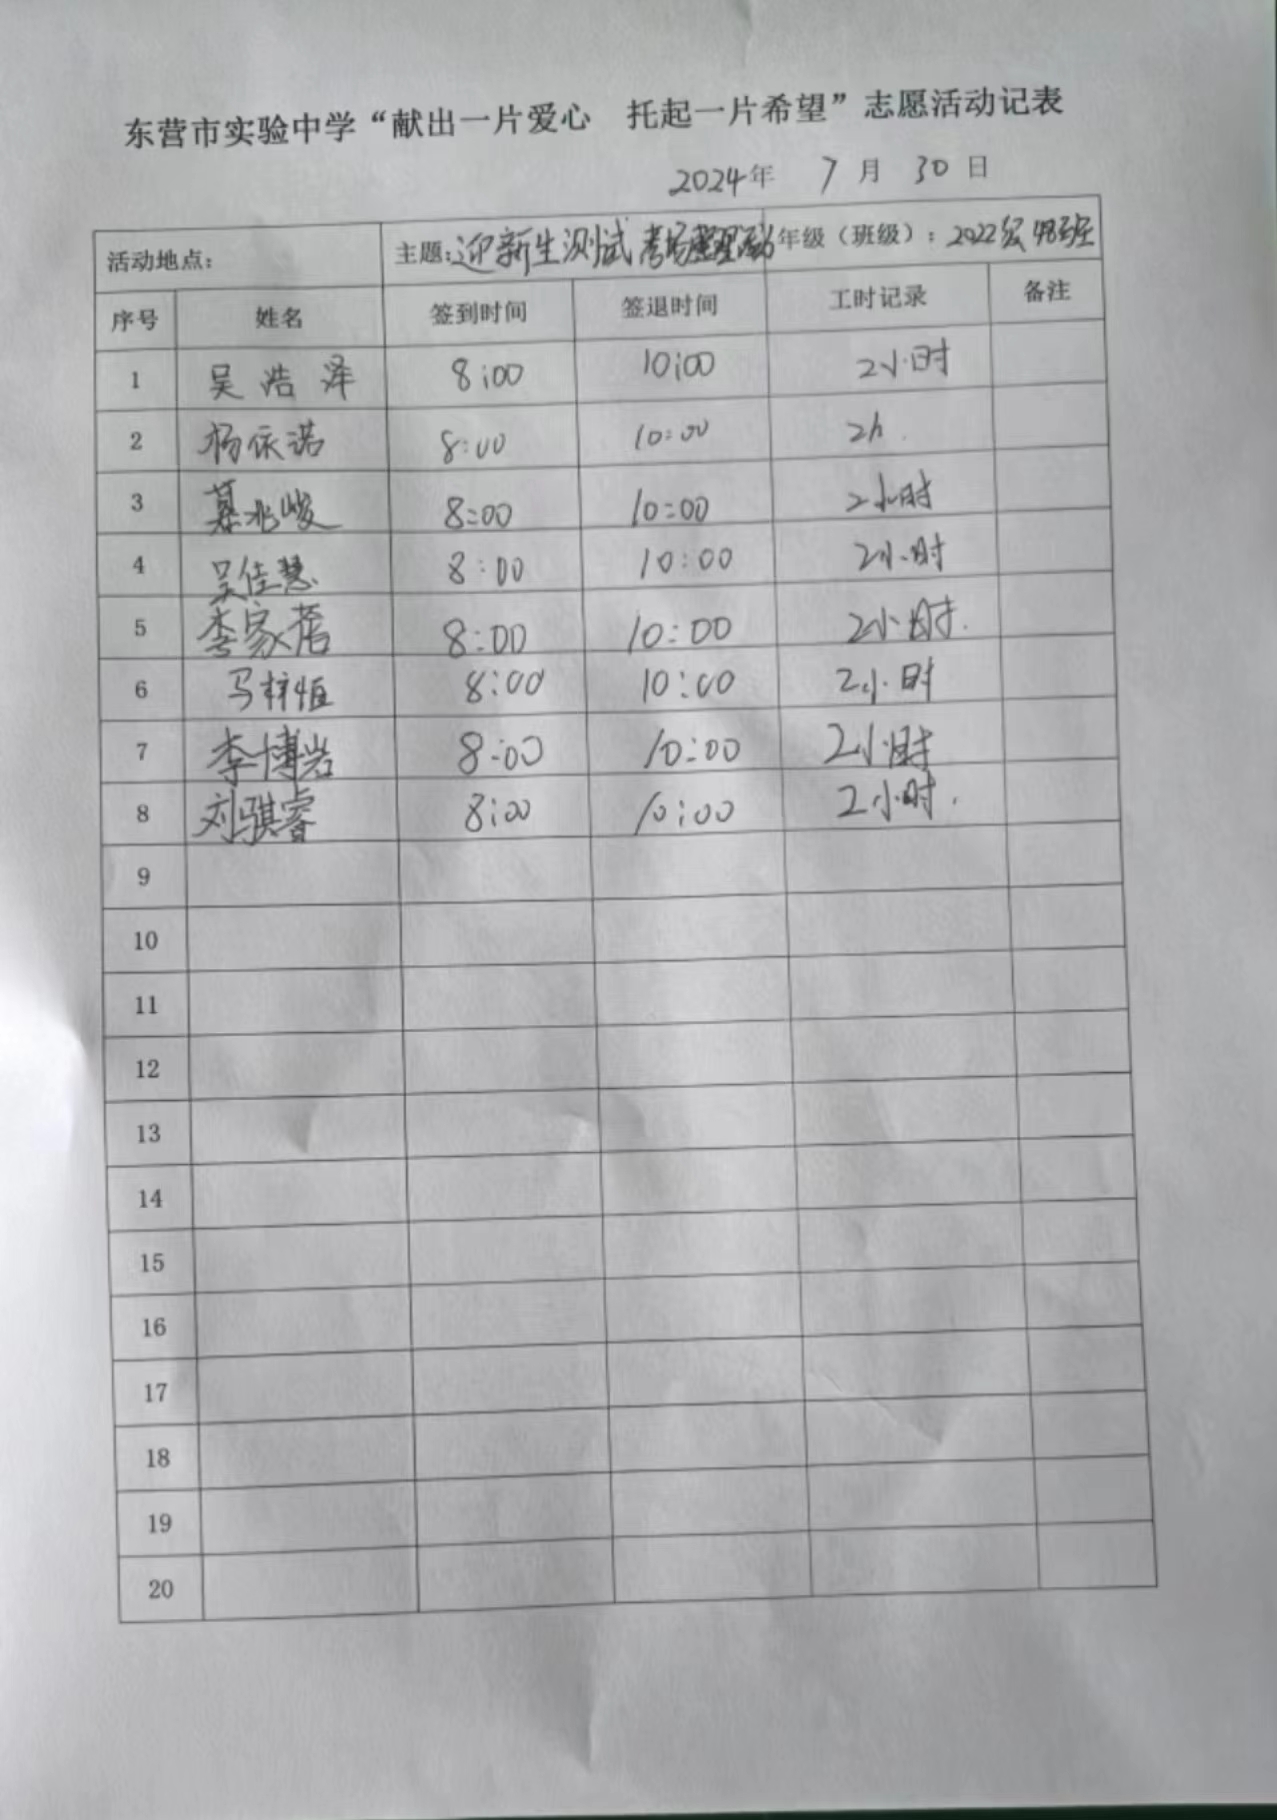 东营市实验中学“献出一片爱心 托起一片希望”志愿活动记表
2024年 7 月 30 日
活动地点： 主题：迎新生测试考场整理活动 年级（班级）：2022级48班
序号 姓名 签到时间 签退时间 工时记录 备注
1 吴浩泽 8:00 10:00 2小时
2 杨依诺 8:00 10:00 2h.
3 綦兆峻 8:00 10:00 2小时
4 吴佳慧 8:00 10:00 2小时
5 李家蓓 8:00 10:00 2小时.
6 马梓恒 8:00 10:00 2小时
7 李博岩 8:00 10:00 2小时
8 刘骐睿 8:00 10:00 2小时.
9
10
11
12
13
14
15
16
17
18
19
20